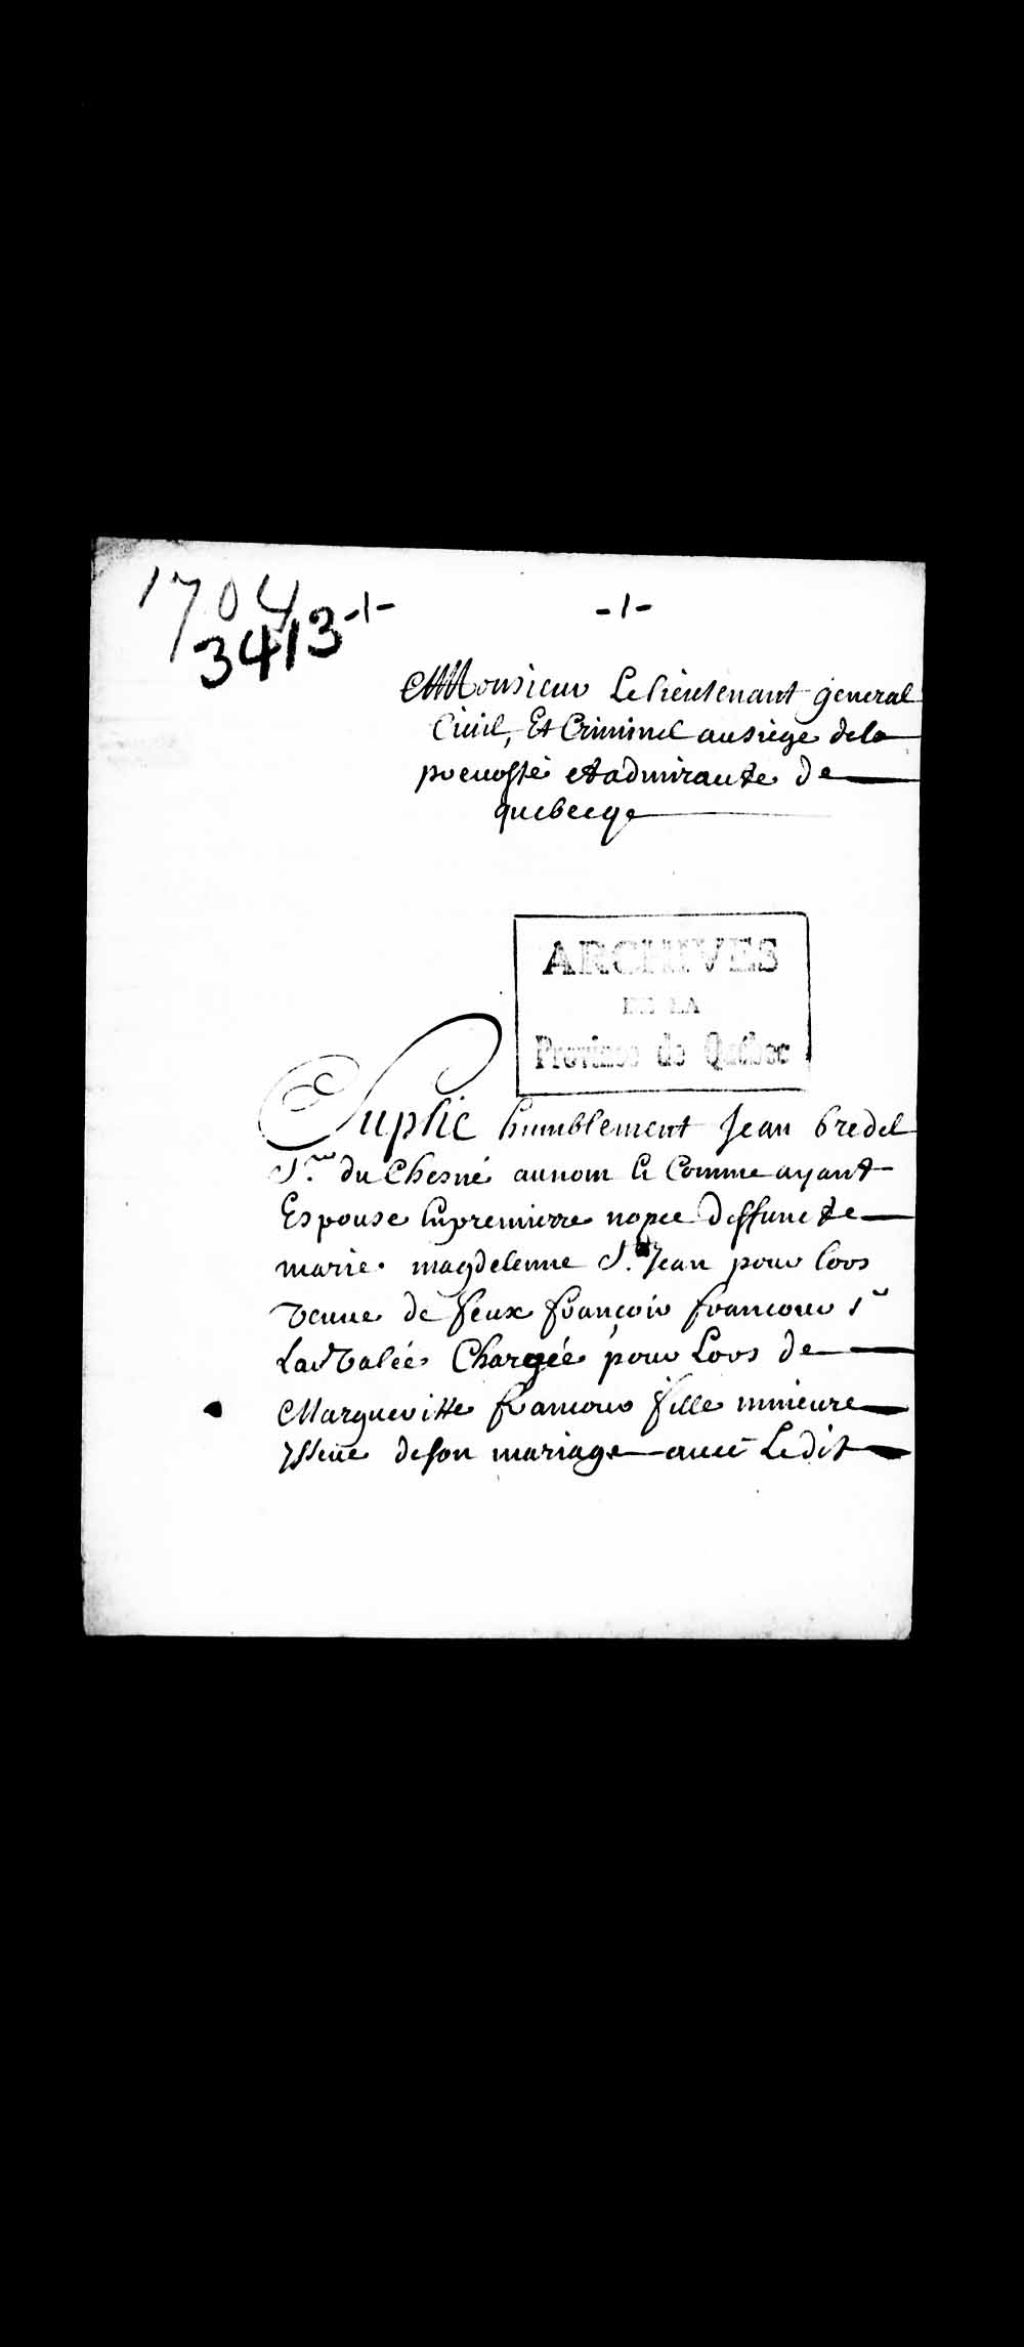 1704
3413-1-
-1-
A Monsieur Le lieutenant general
Ciuil, Et Criminel au siege dela
preuosté et admirauté de
quebecq
ARCHIVES
DE LA
Province de Québec
Suplie humblement Jean bredel
Sr. du Chesné au nom Et Comme ayant
Espousé En premierre nopce deffuncte
marie magdelenne St. Jean pour lors
veuue de feux françois francoeur Sr
La Valée Chargée pour Lors de
Margueritte francoeur fille mineure
yssüe de son mariage auec Ledit